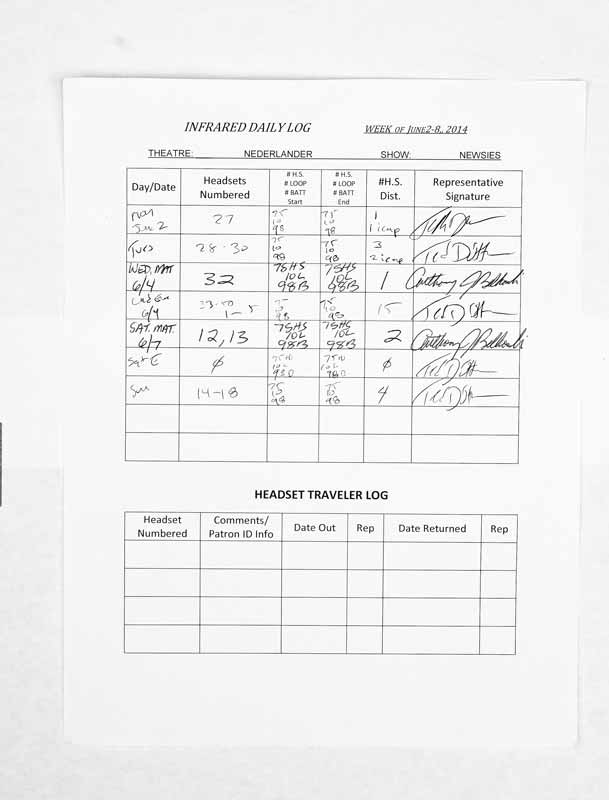 INFRARED DAILY LOG WEEK OF JUNE2-8, 2014
THEATRE: NEDERLANDER SHOW: NEWSIES
Day/Date
Headsets
Numbered
# H.S.
# LOOP
# BATT
Start
# H.S.
# LOOP
# BATT
End
#H.S.
Dist.
Representative
Signature
Mon
Jun 2
27
75
10
98
75
10
98
1
Tues
28-30
75
10
98
75
10
98
3
WED. MAT
6/4
32
75HS
10L
98B
75HS
10L
98B
1
6/4
1-5
75
10
98
75
10
98
15
SAT. MAT.
6/7
12,13
75HS
10L
98B
75HS
10L
98B
2
Sat E
ø
ø
Sun
14-18
75
10
98
75
10
98
4
HEADSET TRAVELER LOG
Headset
Numbered
Comments/
Patron ID Info
Date Out
Rep
Date Returned
Rep